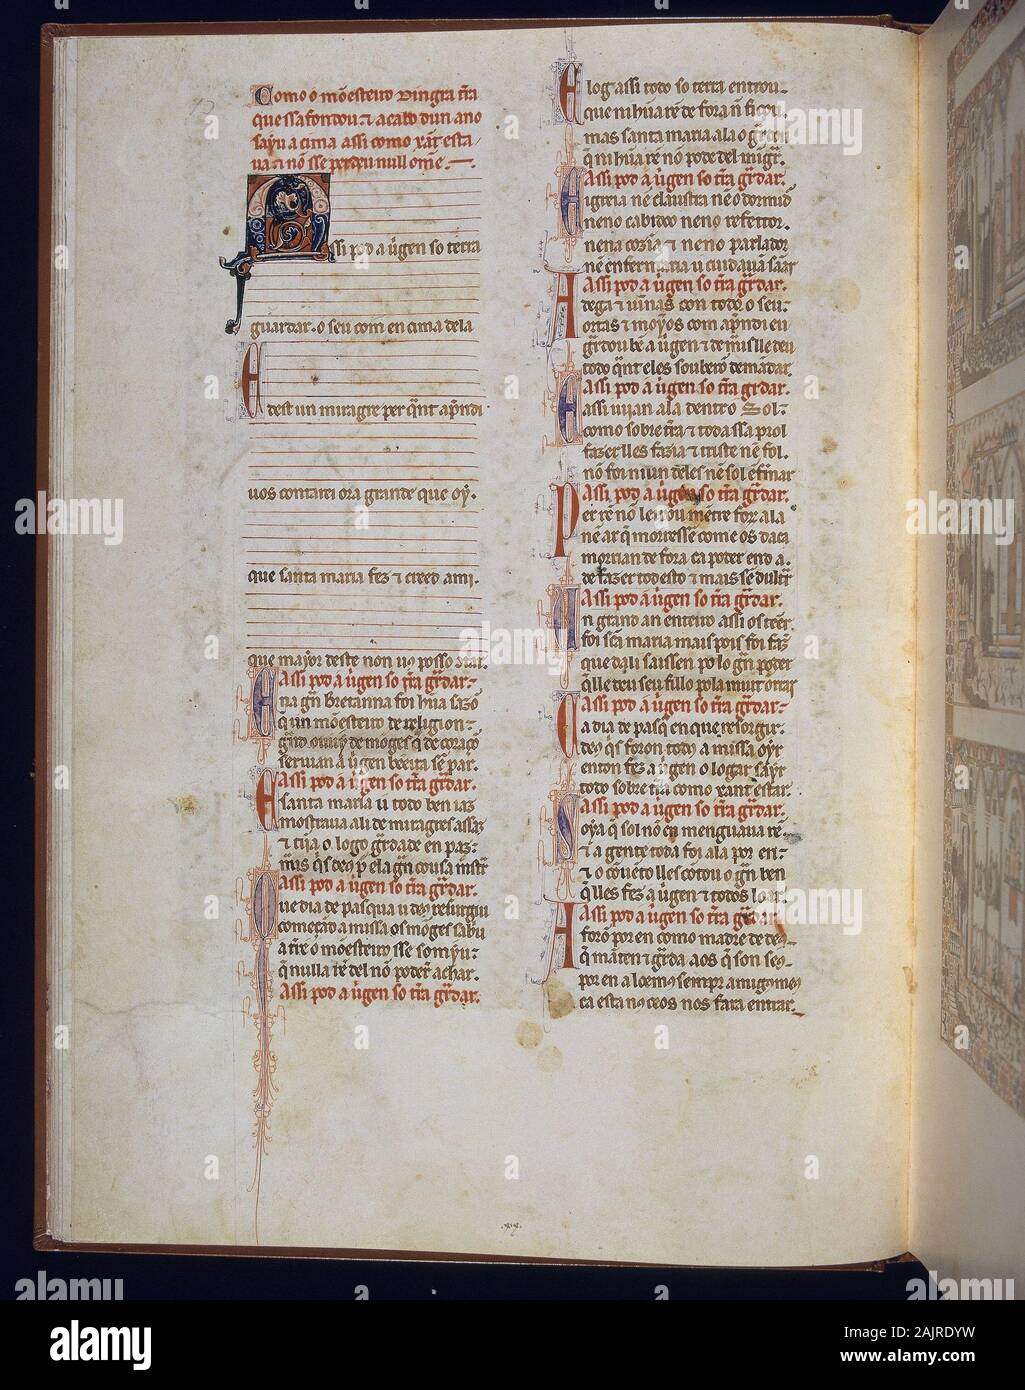 Como o mõesteiro dingra tr̃a
que ssafondou ⁊ acabo dun ano
sayu a cima assi como x̃ant esta
ua ⁊ nõ sse perdeu null ome
Assi pod a u̇gen so terra
guardar. o seu com en cima dela
E dest un miragre per q̃nt ap̃ndi
uos contarei ora grande que oy.
que santa maria fez ⁊ creed a mi.
que mayor deste non uꝯ posso
Assi pod a u̇gen so tr̃a gr̃dar.
Ena gñ Bretanna foi hũa sazõ
q̃ un mõesteiro de religion
grãd ouuy de móges q̃ de coraçõ
seruian a u̇gen beeita sẽ par.
Assi pod a u̇gen so tr̃a gr̃dar.
E santa maria u todo ben iaz
mostraua ali de miragres assaz
⁊ tĩia o logo gr̃dade en paz
mais
Assi pod a u̇gen so tr̃a gr̃dar.
Que dia de pasqua u deꝯ resurgiu
começado a missa os mõges sabu
a tr̃e o mõesteiro sse somyu
q̃ nulla rẽ del nõ poder̃ achar.
Assi pod a u̇gen so tr̃a gr̃dar.
E log assi todo so terra entrou
que nihũa rẽ de fora ñ ficou
mas santa maria ala o g̃dou
q̃ nihũa rẽ nõ pode del mĩgr̃.
Assi pod a u̇gen so tr̃a gr̃dar.
Eigreia nẽ claustra nẽ o dormid
neno cabidoo neno refertor.
nena cozĩa ⁊ neno parlador
nẽ enfermaria u cuidauã sãar
Assi pod a u̇gen so tr̃a gr̃dar.
Adega ⁊ uinnas con todo o seu
ortas ⁊ moyos com ap̃ndi eu
gr̃dou bẽ a u̇gen ⁊ demais lle deu
todo q̃nt eles souberõ demãdar.
Assi pod a u̇gen so tr̃a gr̃dar.
E assi uijan ala dentro o Sol
como sobre tr̃a ⁊ toda ssa prol
fazer lles fazia ⁊ triste nẽ fol.
nõ foi niun deles nẽ sol ẽfermar
Assi pod a u̇gen so tr̃a gr̃dar.
Per rẽ nõ leixou mẽtre foz ala
nẽ ar q̃ morresse come os daca
morrian de fora ca poder end a.
de fazer tod esto ⁊ mais sẽ dultar
Assi pod a u̇gen so tr̃a gr̃dar.
Un grand an enteiro assi os teẽr
foi sc̃a maria mais pois foi faz̃
que dali saissen po lo gñ poder
q̃ lle deu seu fillo pola muit onrrar
Assi pod a u̇gen so tr̃a gr̃dar
Ca dia de pasq̃ en que resorgir
deꝯ q̃s foron todꝯ a missa oyr
enton fez a u̇gen o logar sayr
todo sobre tr̃a como x̃ant estar.
Assi pod a u̇gen so tr̃a gr̃dar.
Soya q̃ sol nõ en menguaua rẽ
⁊ a gente toda foi ala por en
⁊ o cõuẽto lles cõtou o gñ ben
q̃ lles fez a u̇gen ⁊ todos loar.
Assi pod a u̇gen so tr̃a gr̃dar
A forõ por en como madre de deꝯ
q̃ mãten ⁊ g̃rda aos q̃ son seꝯ
por en a loemꝯ sempr amigꝯ meꝯ
ca esta nꝯ ceos nos fara entrar.
a alamy
alamy
Image ID: 2AJRDYW
www.alamy.com